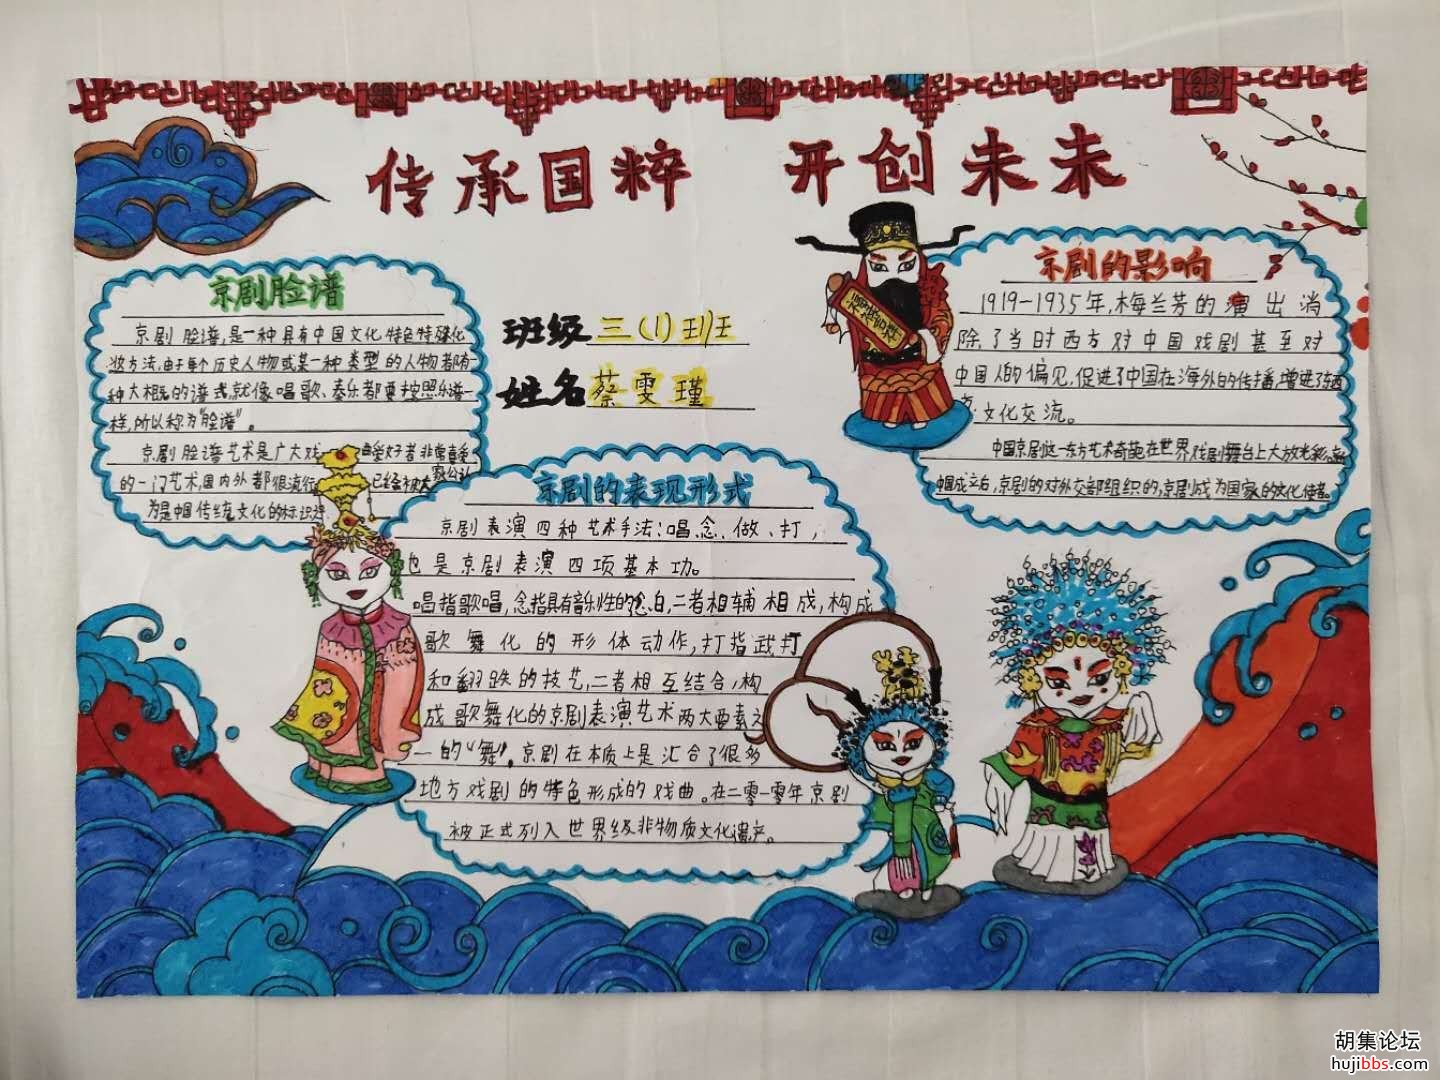 传承国粹 开创未来
京剧脸谱
京剧脸谱,是一种具有中国文化特色特殊化
妆方法,由于每个历史人物或某一种类型的人物都有一
种大概的谱式,就像唱歌、奏乐都要按照乐谱一
样,所以称为"脸谱"。
京剧脸谱艺术是广大戏曲爱好者非常喜爱
的一门艺术,国内外都很流行,已经被大家公认
为是中国传统文化的标识
班级 三(1)班
姓名 蔡雯瑾
福禄吉祥
京剧的表现形式
京剧表演四种艺术手法:唱、念、做、打,
也是京剧表演四项基本功。
唱指歌唱,念指具有音乐性的念白,二者相辅相成,构成
歌舞化的形体动作,打指武打
和翻跌的技艺,二者相互结合,构
成歌舞化的京剧表演艺术两大要素之
一的"舞"。京剧在本质上是汇合了很多
地方戏剧的特色形成的戏曲。在二零一零年京剧
被正式列入世界级非物质文化遗产。
京剧的影响
1919-1935年,梅兰芳的演出消
除了当时西方对中国戏剧甚至对
中国人的偏见,促进了中国在海外的传播,增进了东西
方文化交流。
中国京剧这一东方艺术奇葩在世界戏剧舞台上大放光彩。
中国成立后,京剧的对外交部组织的,京剧成为国家的文化使者。
胡集论坛
hujibbs.com